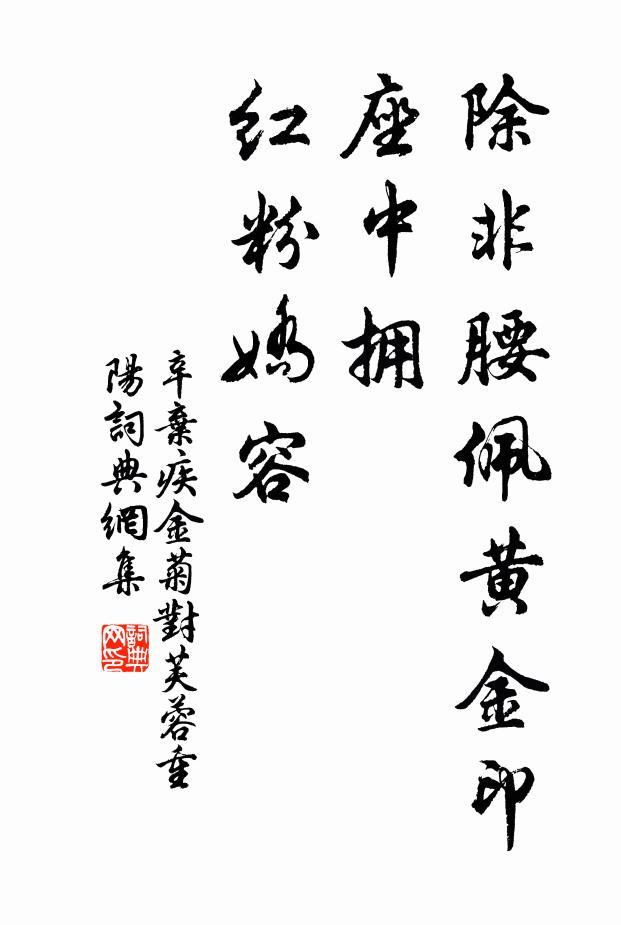 除非腰佩黄金印
座中拥
红粉嬌容
辛棄疾金菊對芙蓉重
陽詞典網集
詞典
网印